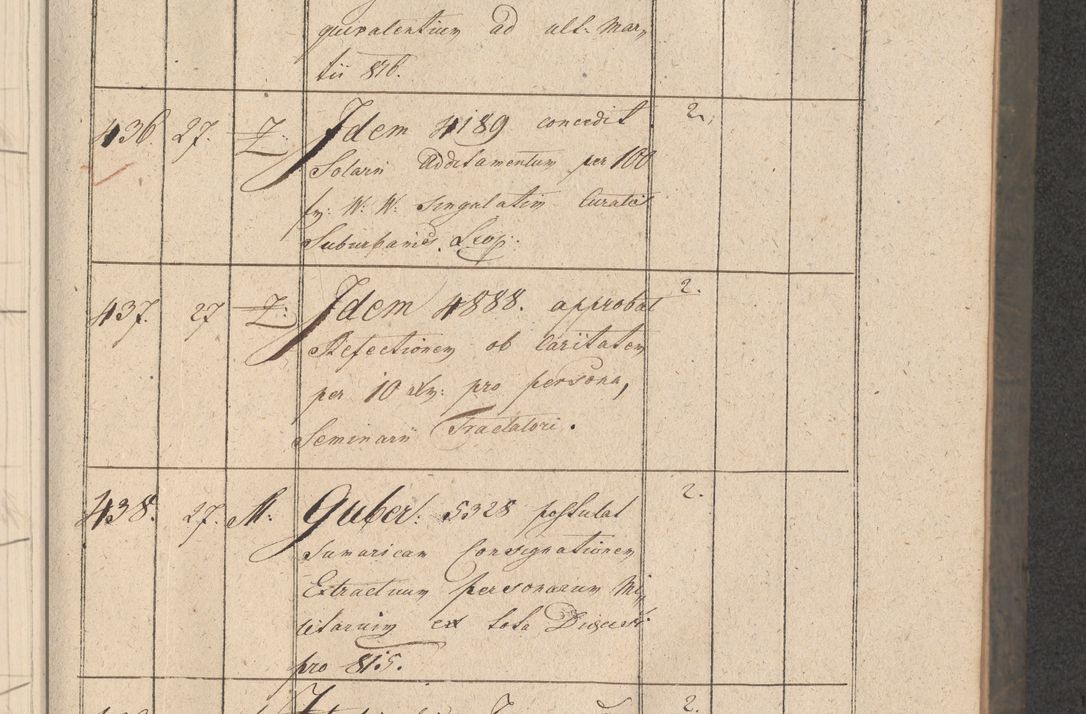 quivalentium ad ult. Mar,
tii 816.
436. 27. Z. Idem 4189 concedit 2.
Solarii additamentum per 100
fr. W. W. singulatim Curatis
Suburbanis Leop.
437. 27 Z. Idem 4888. approbat 2.
Refectionem ob Caritatem
per 10 xm. pro persona,
Seminarii Tractatori.
438. 27. M. Guber. 5328 postulat 2.
Sumaricam Consignationem
Extractuum personarum Mi,
litarium ex tota Dioecesi
pro 815.
2.